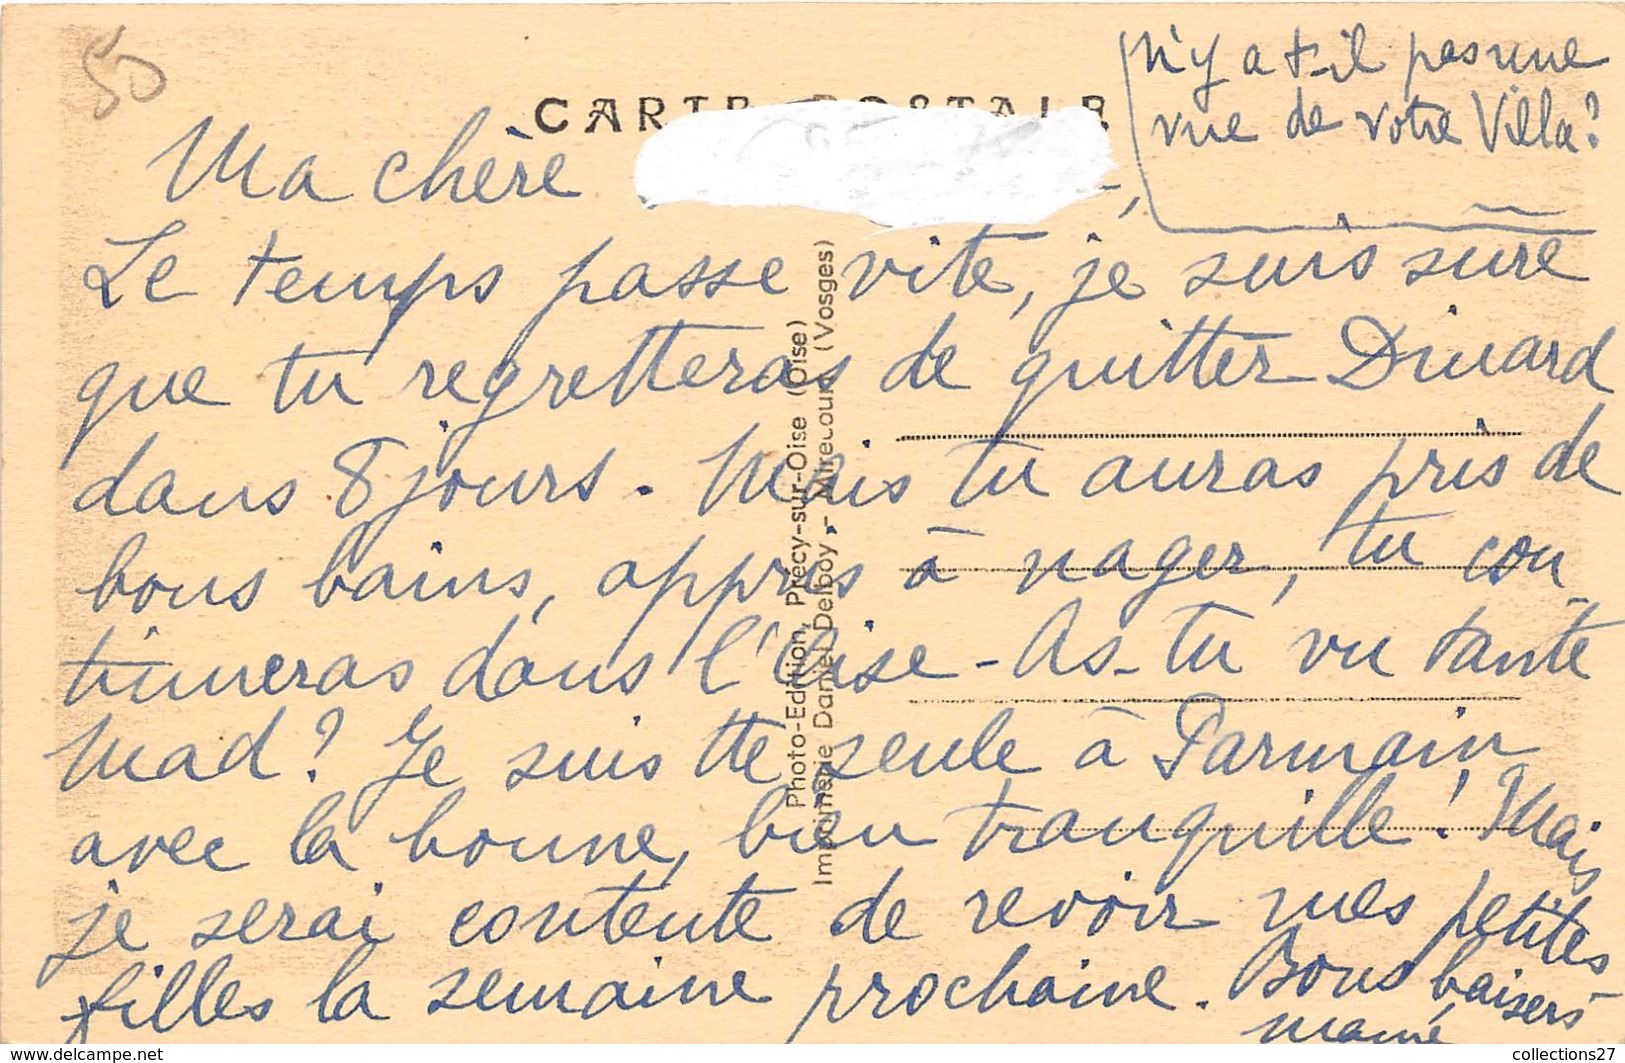 50
n'y a t-il pas une
vue de votre Villa?
CARTE POSTALE
Ma chère
Le temps passe vite, je suis sûre
que tu regretteras de quitter Dinard
dans 8 jours. Mais tu auras pris de
bons bains, appris à nager, tu con-
tinueras dans l'Oise - As-tu vu tante
Mad? Je suis tte seule à Parmain
avec la bonne, bien tranquille! Mais
je serai contente de revoir mes petites
filles la semaine prochaine. Bons baisers
mamé
Photo-Edition, Précy-sur-Oise (Oise)
Imprimerie Daniel Delboy, - Mirecourt (Vosges)
https://www.delcampe.net
collections27